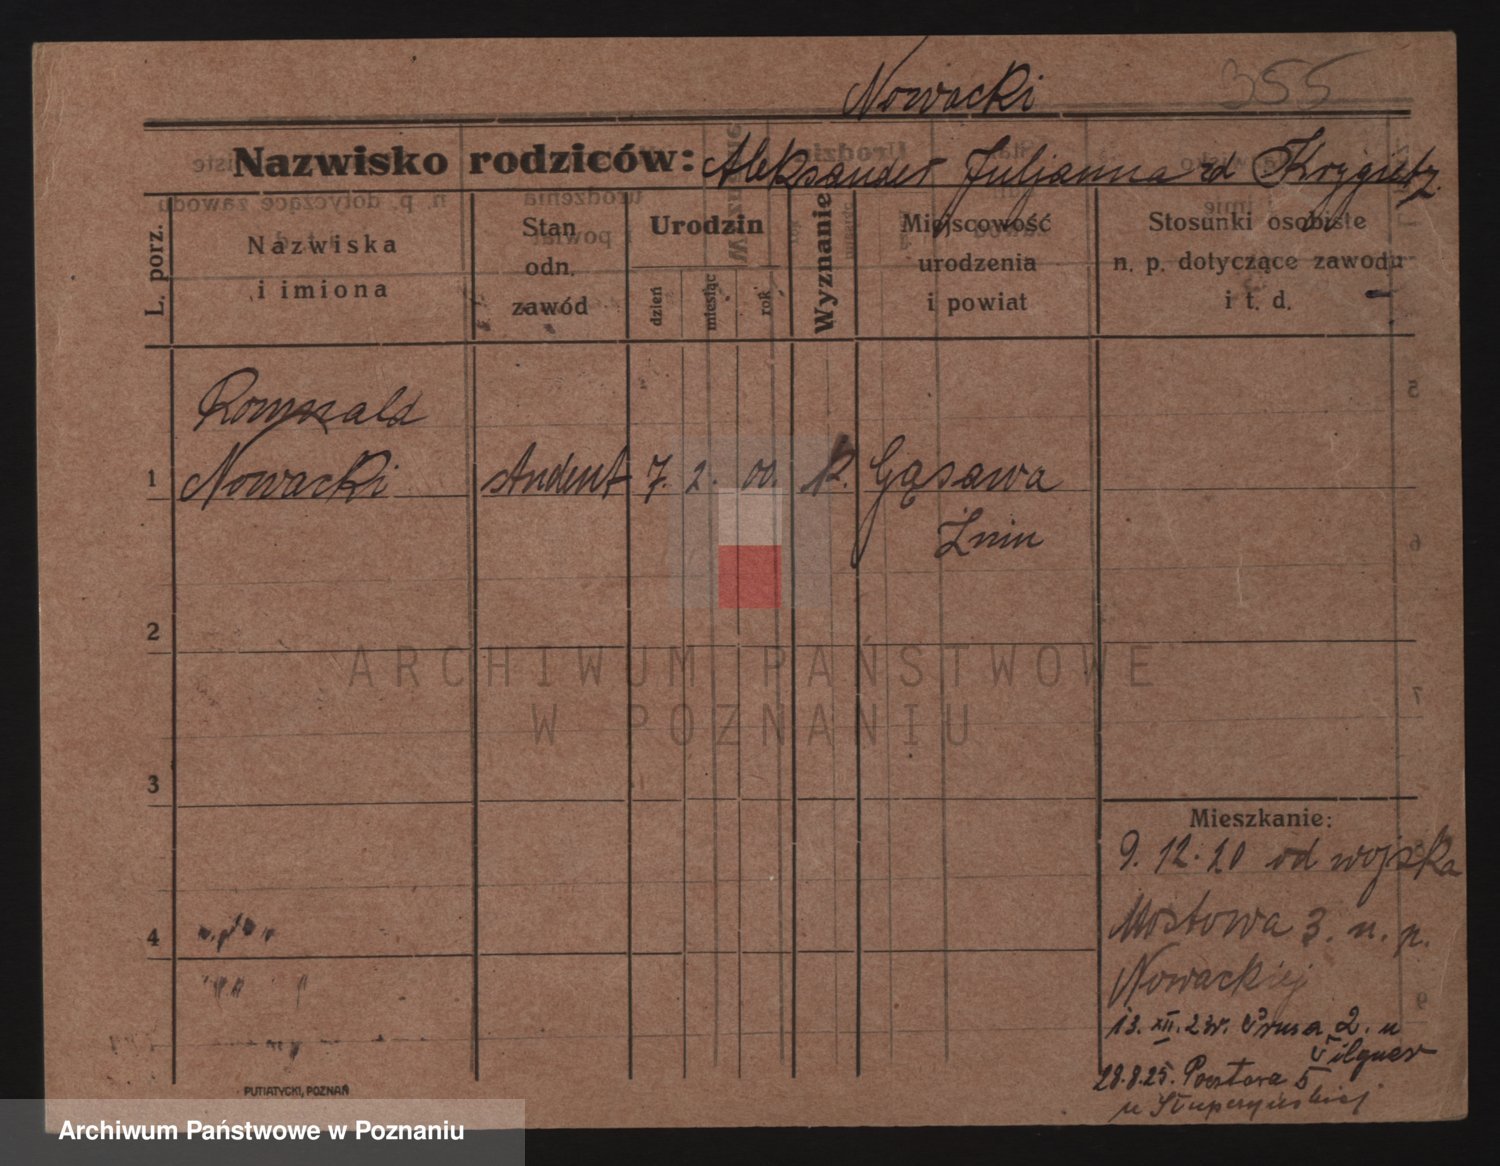 Nowacki 355
Nazwisko rodziców: Aleksander Juljanna zd
L. porz.
Nazwiska
i imiona
Stan
odn.
zawód
Urodzin
dzień miesiąc rok
Wyznanie
Miejscowość
urodzenia
i powiat
Stosunki osobiste
n. p. dotyczące zawodu
i t. d.
Romuald
1 Nowacki student 7. 2. 00. k. Gąsawa
Żnin
2
3
4
Mieszkanie:
9. 12. 20 od wojska
Mostowa 3. u. p.
Nowackiej
13. XII. Prusa 2. u
Tilgner
28.8.25. 5
u
PUTIATYCKI, POZNAŃ
ARCHIWUM PAŃSTWOWE
W POZNANIU
Archiwum Państwowe w Poznaniu